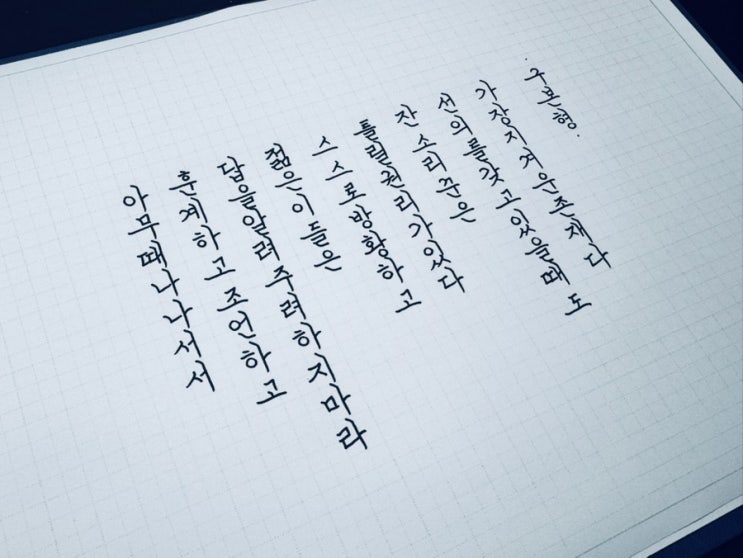 아무때나 나서서
훈계하고 조언하고
답을 알려 주려 하지 마라
젊은이들은
스스로 방황하고
틀릴 권리가 있다
잔소리꾼은
선의를 갖고 있을 때도
가장 지겨운 존재다
구본형.